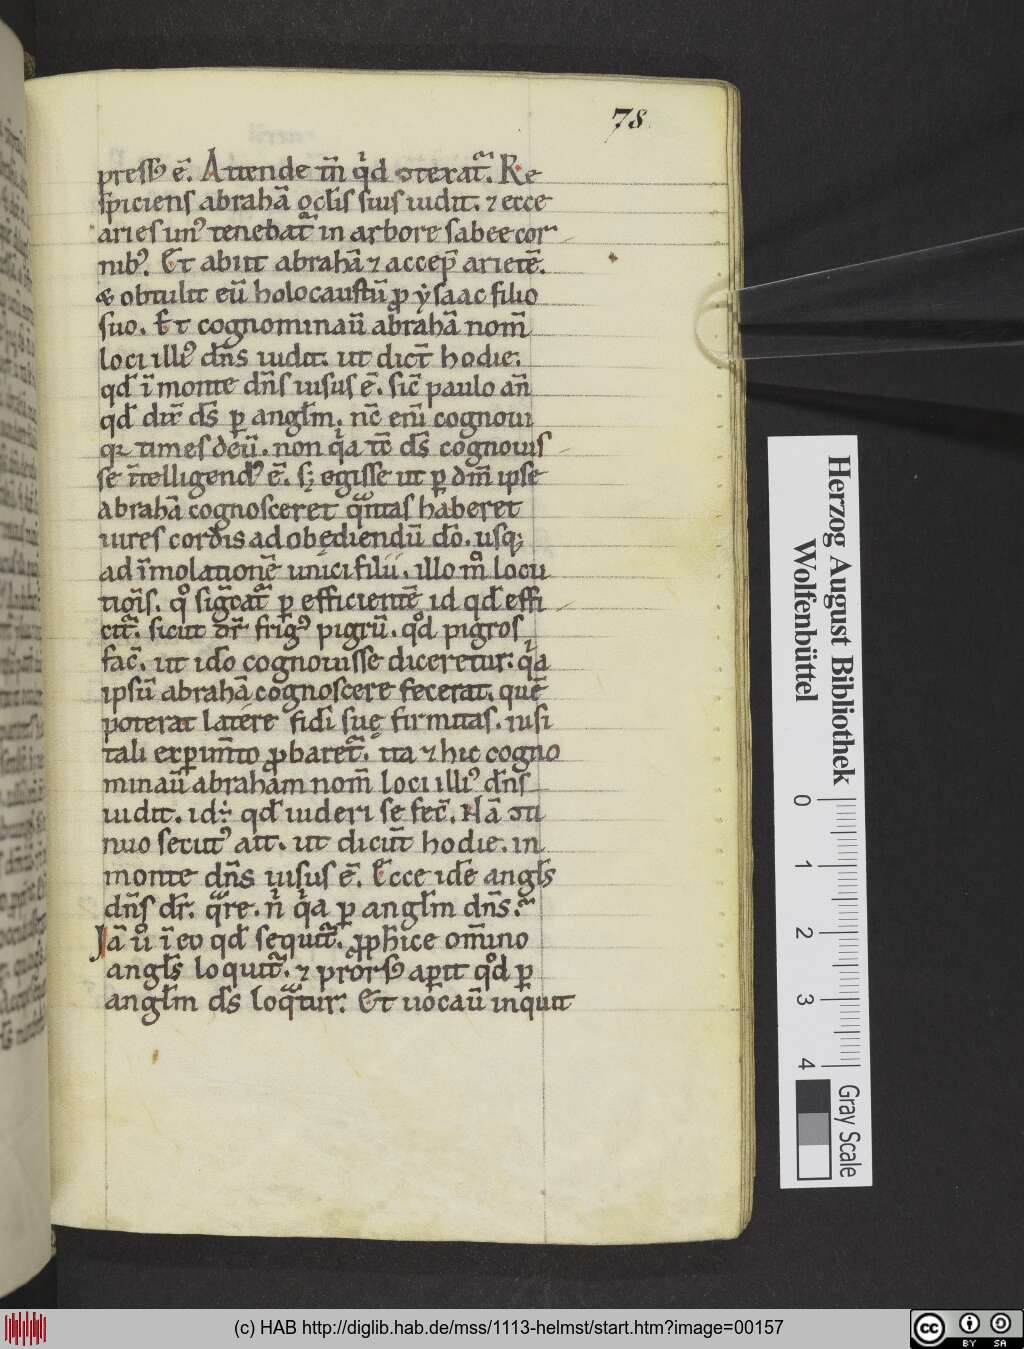 78
presſꝰ ē. Attende tm̄ qid ↄtexat᷑. Re
ſpiciens abrahā ocl̄is ſuis uidit. ⁊ ecce
aries unꝰ tenebat᷑ in arbore ſabee cor
nibꝰ. Et abiit abrahā ⁊ accep̄ arietē.
⁊ obtulit eū holocauſtū ꝓ ẏſaac filio
ſuo. Et cognominauit̄ abrahā nom̄
loci illiꝰ dn̄s uidit. ut dict̄ hodie.
qd̄ ī monte dn̄s uiſus ē. ſic̄ paulo an̄
qd̄ dix̄ ds̄ ꝑ angl̄m. nc̄ eni̅ cognoui
qꝛ times deū. non qia tc̄ ds̄ cognouiſ
ſe īntelligendꝰ ē. ſꝫ egiſſe ut ꝑ dm̄ ipſe
abrahā cognoſceret qᵃntas haberet
uires cordis ad obediendū do̅. uſqꝫ
ad īmolationē unici filii. illo mº locu
tiōis. qº ſig̅cat᷑ ꝑ efficientē id qd̄ effi
cit᷑. ſicut dr̄ frigꝰ pigrū. qºd pigros
fac̄. ut ido̅ cognouiſſe diceretur. qia
ipſū abrahā cognoſcere fecerat. quē
poterat latere fidi̅ ſuę firmitas. niſi
tali exꝑim̄to ꝓbaret᷑. ita ⁊ hic cogno
minauit̄ abraham nom̄ loci illiꝰ dn̄s
uidit. id÷ qd̄ uideri ſe fec̄. Nā ↄti
nuo ſecutꝰ ait. ut dicūt hodie. in
monte dn̄s uiſus ē. Ecce ide̅ angl̄s
dn̄s dr̄. qᵃre. n̄ qia ꝑ angl̄m dn̄s.
Jā uº ī eo qd̄ ſequit᷑. ꝓph̄ice om̄ino
angl̄s loquit᷑. ⁊ prorſꝰ aꝑit qºd ꝑ
angl̄m ds̄ loqᵃtur. Et uocauit̄ inquit
Herzog August Bibliothek
Wolfenbüttel
0 1 2 3 4
Gray Scale
(c) HAB http://diglib.hab.de/mss/1113-helmst/start.htm?image=00157
cc BY SA